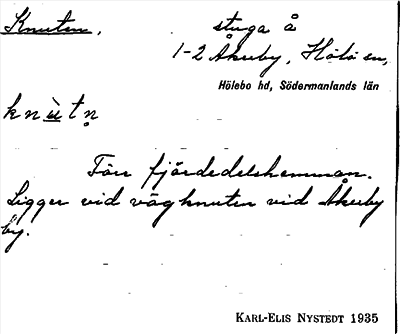 Knuten, stuga å
1-2 Åkerby, Hölö sn,
Hölebo hd, Södermanlands län
knùtn̥
Förr fjärdedelshemman.
Ligger vid vägknuten vid Åkerby
by.
KARL-ELIS NYSTEDT 1935